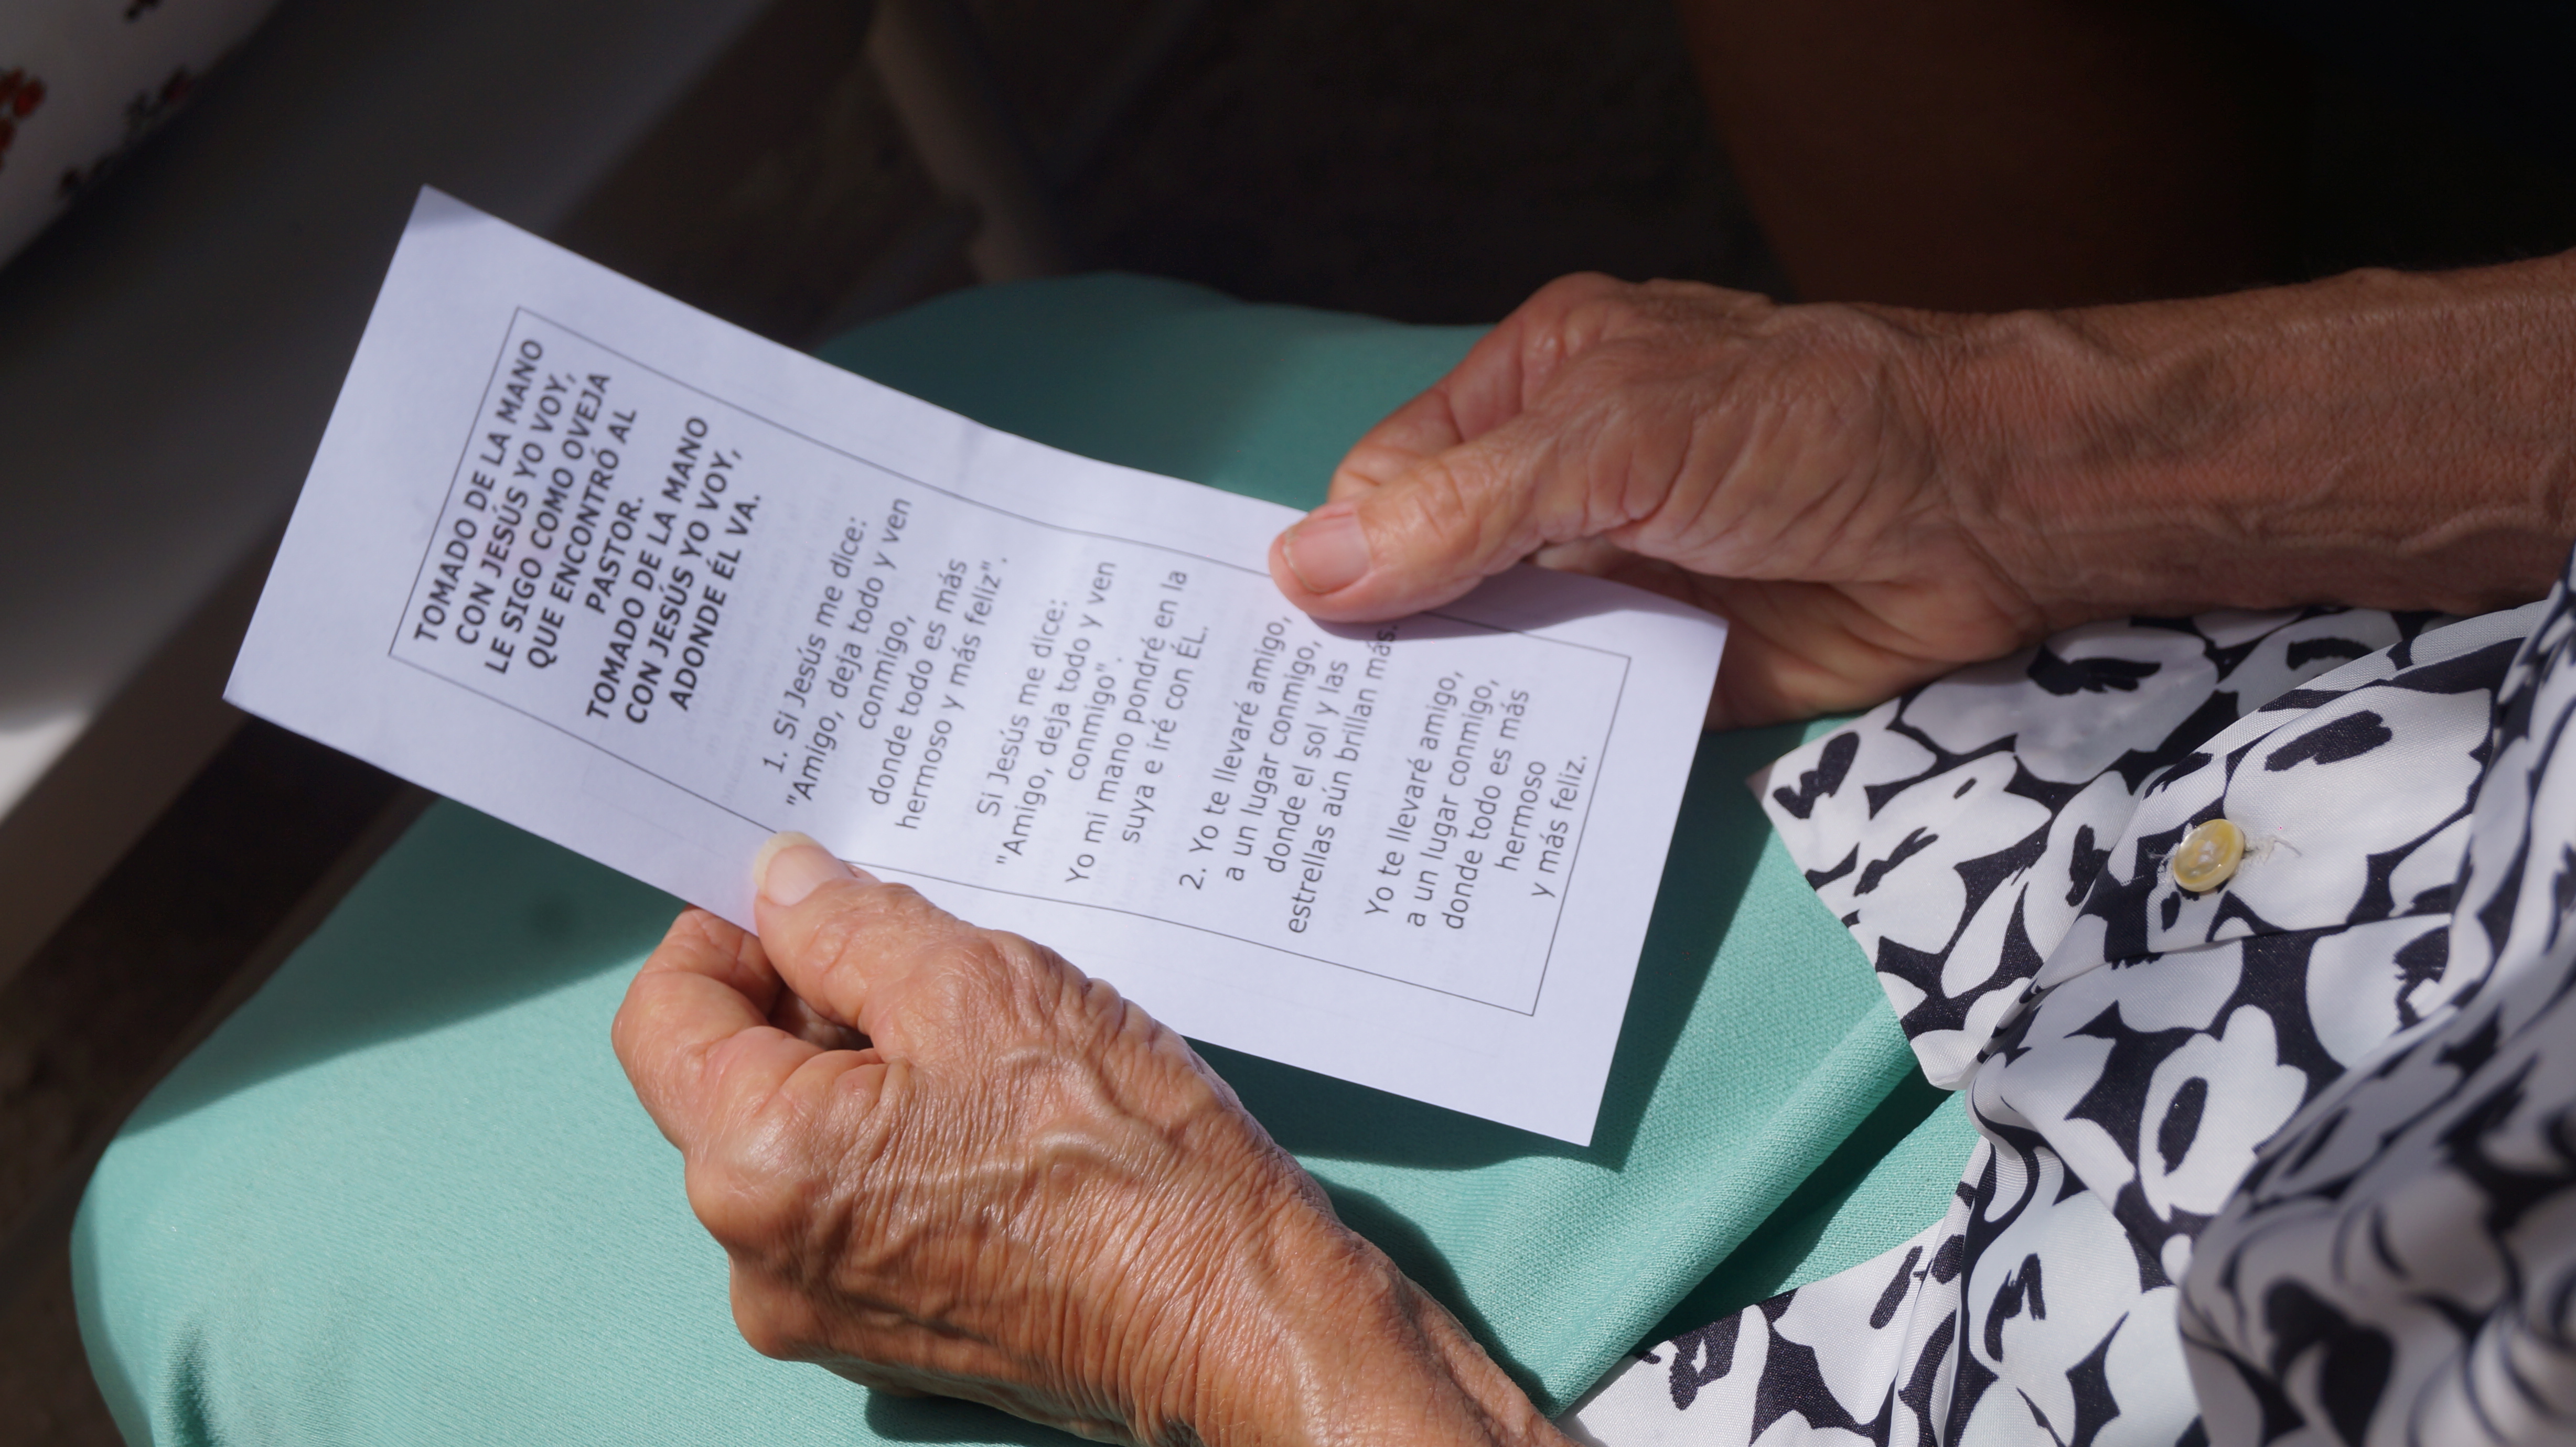 TOMADO DE LA MANO
CON JESÚS YO VOY,
LE SIGO COMO OVEJA
QUE ENCONTRÓ AL
PASTOR.
TOMADO DE LA MANO
CON JESÚS YO VOY,
ADONDE ÉL VA.
1. Si Jesús me dice:
"Amigo, deja todo y ven
conmigo,
donde todo es más
hermoso y más feliz".
Si Jesús me dice:
"Amigo, deja todo y ven
conmigo".
Yo mi mano pondré en la
suya e iré con ÉL.
2. Yo te llevaré amigo,
a un lugar conmigo,
donde el sol y las
estrellas aún brillan más.
Yo te llevaré amigo,
a un lugar conmigo,
donde todo es más
hermoso
y más feliz.